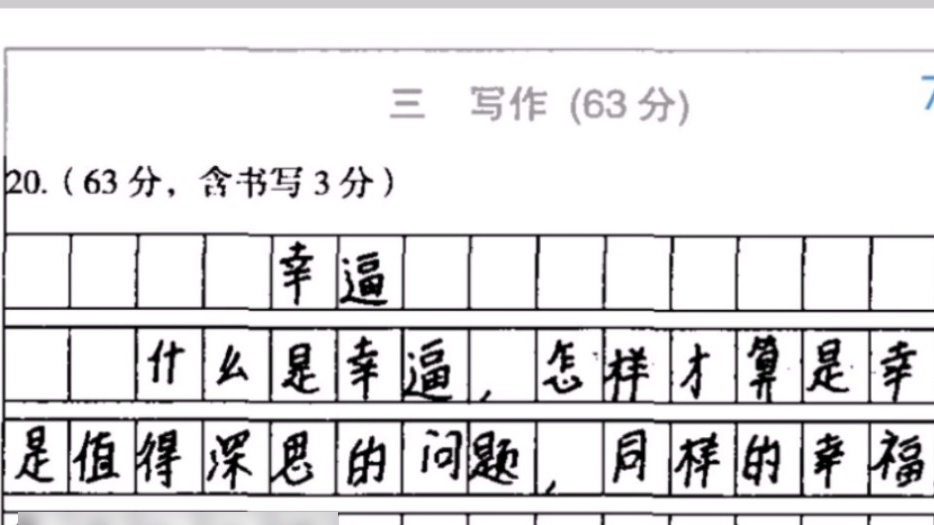 三 写作 (63 分)
20.(63 分，含书写 3 分)
幸逼
什么是幸逼，怎样才算是幸
是值得深思的问题，同样的幸福